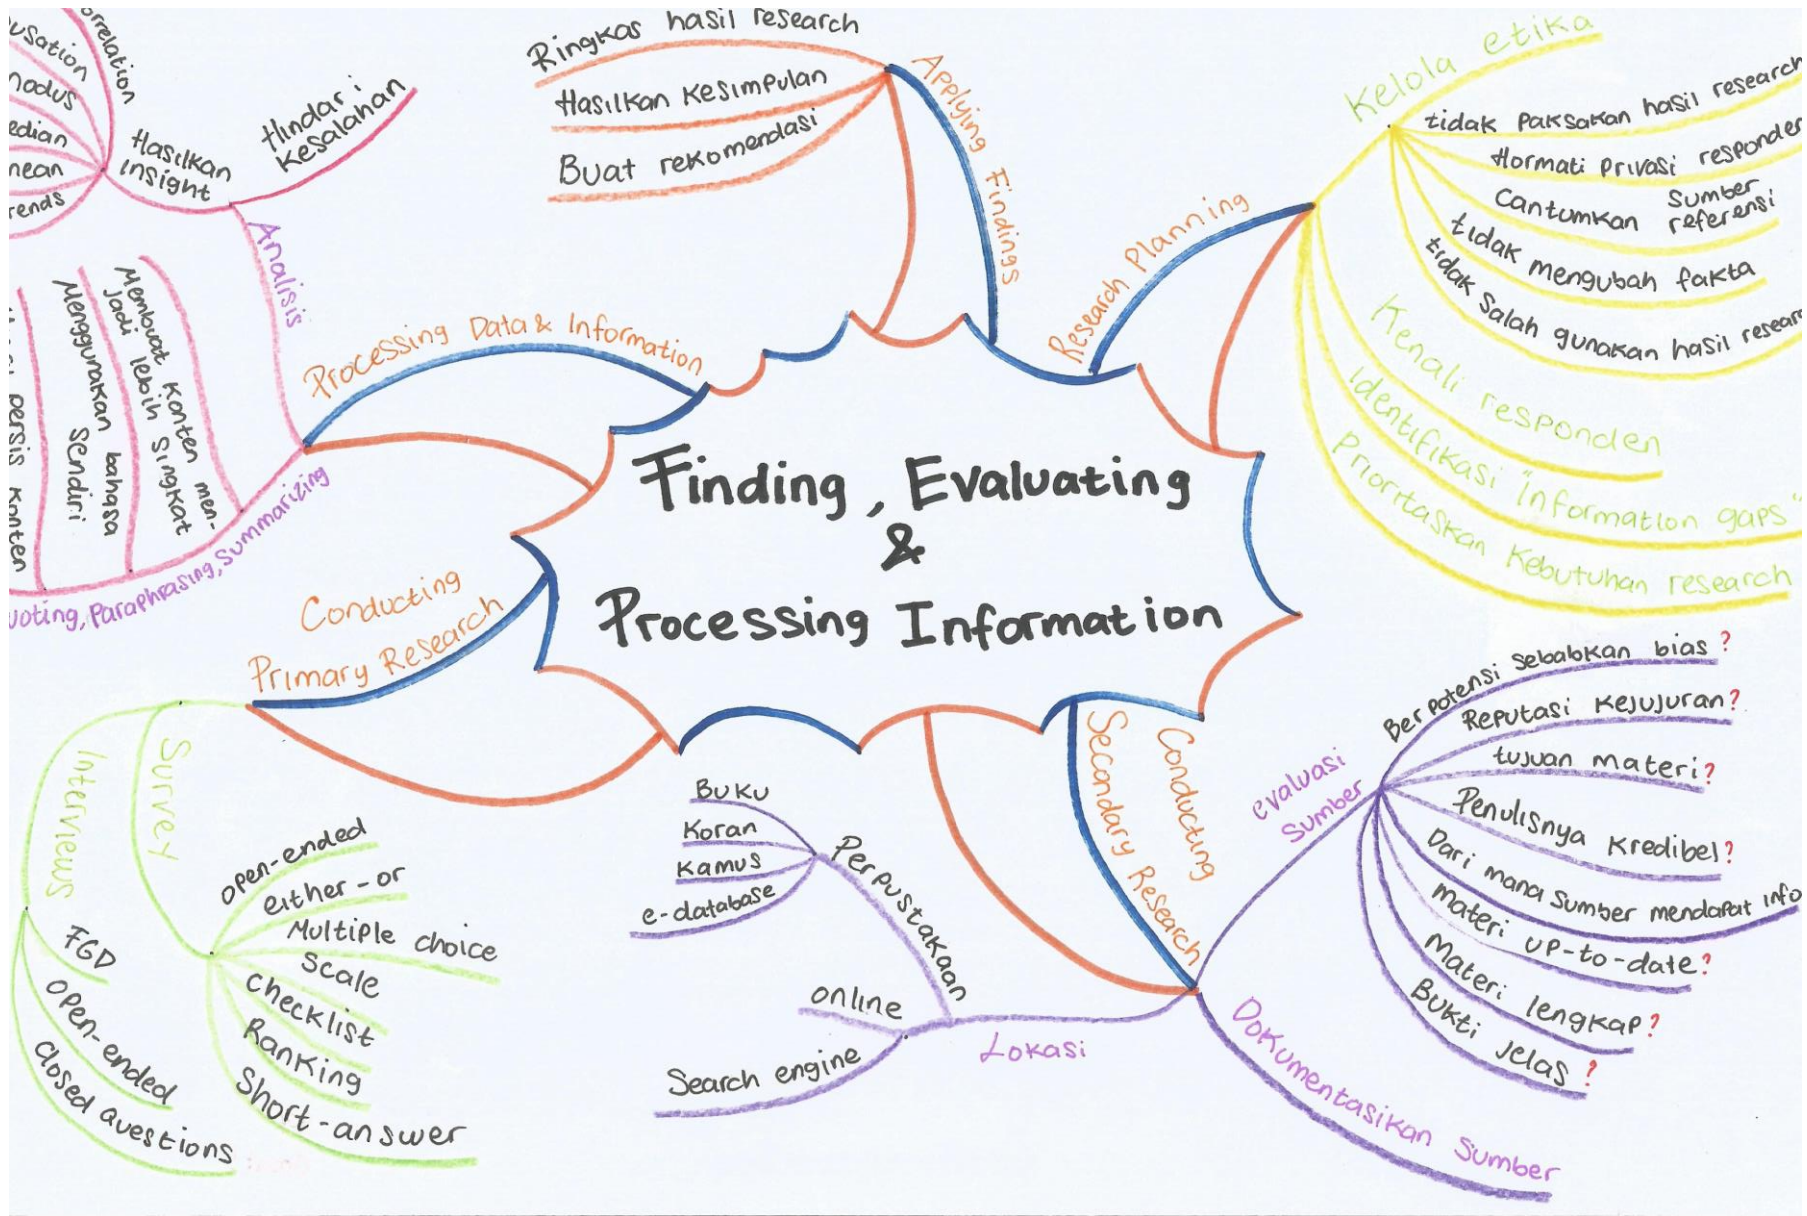 Finding, Evaluating
&
Processing Information
Applying Findings
Ringkas hasil research
Hasilkan kesimpulan
Buat rekomendasi
Research Planning
Kelola etika
tidak paksakan hasil research
Hormati privasi responden
Cantumkan sumber
referensi
tidak mengubah fakta
tidak salah gunakan hasil
Kenali responden
Identifikasi "Information gaps"
Prioritaskan kebutuhan research
Conducting
Secondary Research
evaluasi
sumber
Berpotensi sebabkan bias?
Reputasi kejujuran?
tujuan materi?
Penulisnya kredibel?
Dari mana sumber mendapat info
materi up-to-date?
Materi lengkap?
Bukti jelas?
Dokumentasikan sumber
Lokasi
Perpustakaan
Buku
Koran
Kamus
e-database
online
Search engine
Conducting
Primary Research
Survey
open-ended
either-or
Multiple choice
Scale
Checklist
Ranking
Short-answer
Interviews
FGD
open-ended
Closed questions
Processing Data & Information
Analisis
Hindari
kesalahan
Hasilkan
insight
Paraphrasing, Summarizing
Membuat konten men-
jadi lebih singkat
Menggunakan bahasa
sendiri
persis konten